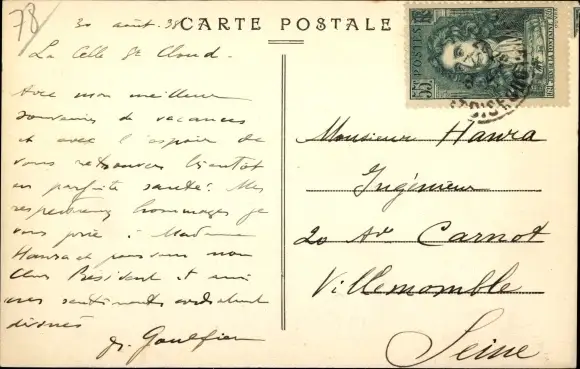 78
30 août 38
CARTE POSTALE
La Celle St Cloud.
Avec mon meilleur
souvenir de vacances
et avec l'espoir de
vous retrouver bientôt
en parfaite santé. Mes
respectueux hommages je
vous prie à Madame
Hawra et pour vous mon
cher Président et ami
mes sentiments
dévoués
POSTES
RF
55c
Monsieur Hawra
Ingénieur
20 Av Carnot
Villemomble
Seine